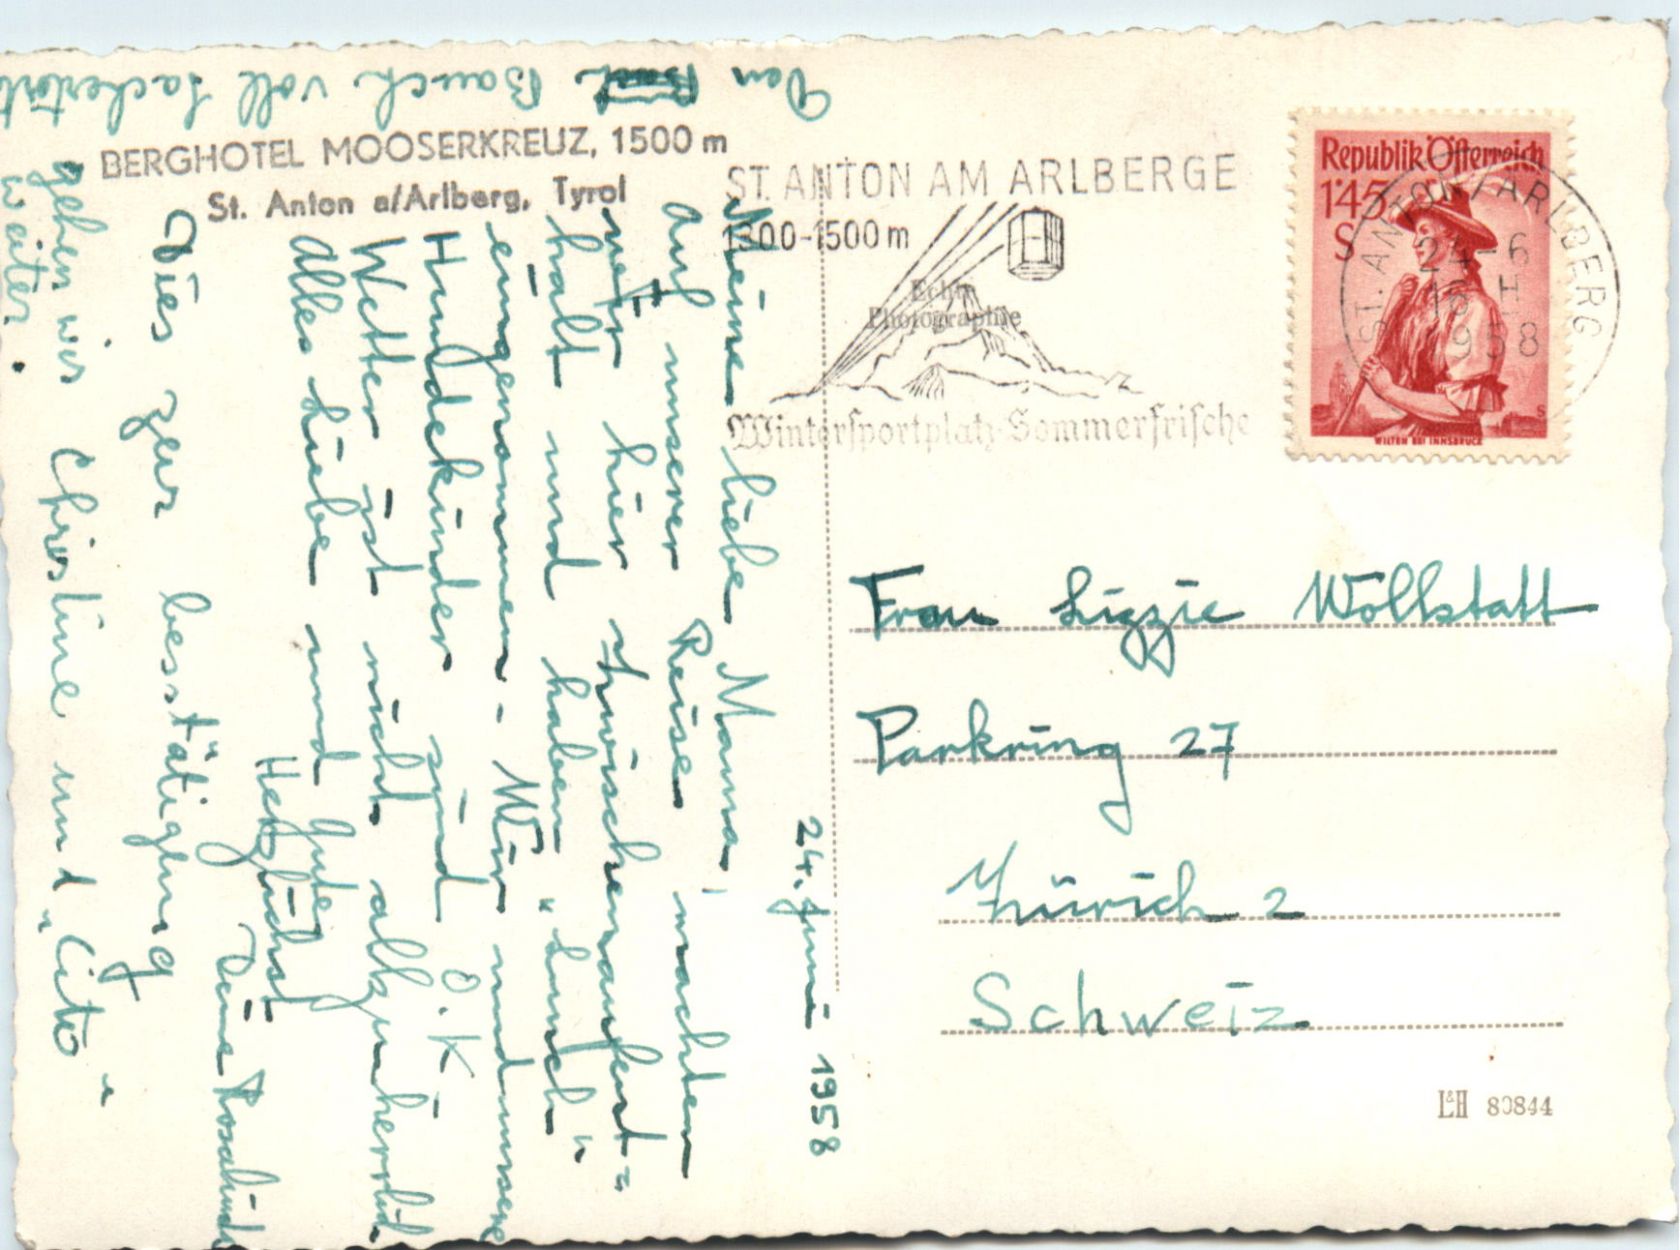 BERGHOTEL MOOSERKREUZ, 1500 m
St. Anton a/Arlberg, Tyrol
ST. ANTON AM ARLBERGE
1300-1500 m
Echte
Photographie
Wintersportplatz-Sommerfrische
Republik Österreich
1'45
S
WILTEN BEI INNSBRUCK
ST. ANTON / ARLBERG
24-6
16 II
1958
24. Juni 1958
Meine liebe Mama,
Auf unserer Reise machten
wir hier Zwischenaufent=
halt und haben "Lunch"
eingenommen - Wir und unsere
Hundekinder sind O.K.
Wetter ist nicht allzu herrlich
Alles Liebe und Gute
Herzlichst
Deine
Dies zur besstätigung
gehen wir Christine und "Cito"
weiter.
Den Bauch voll Sachertorte
Frau Lizzie Wollstatt
Parkring 27
Zürich 2
Schweiz
L&H 80844